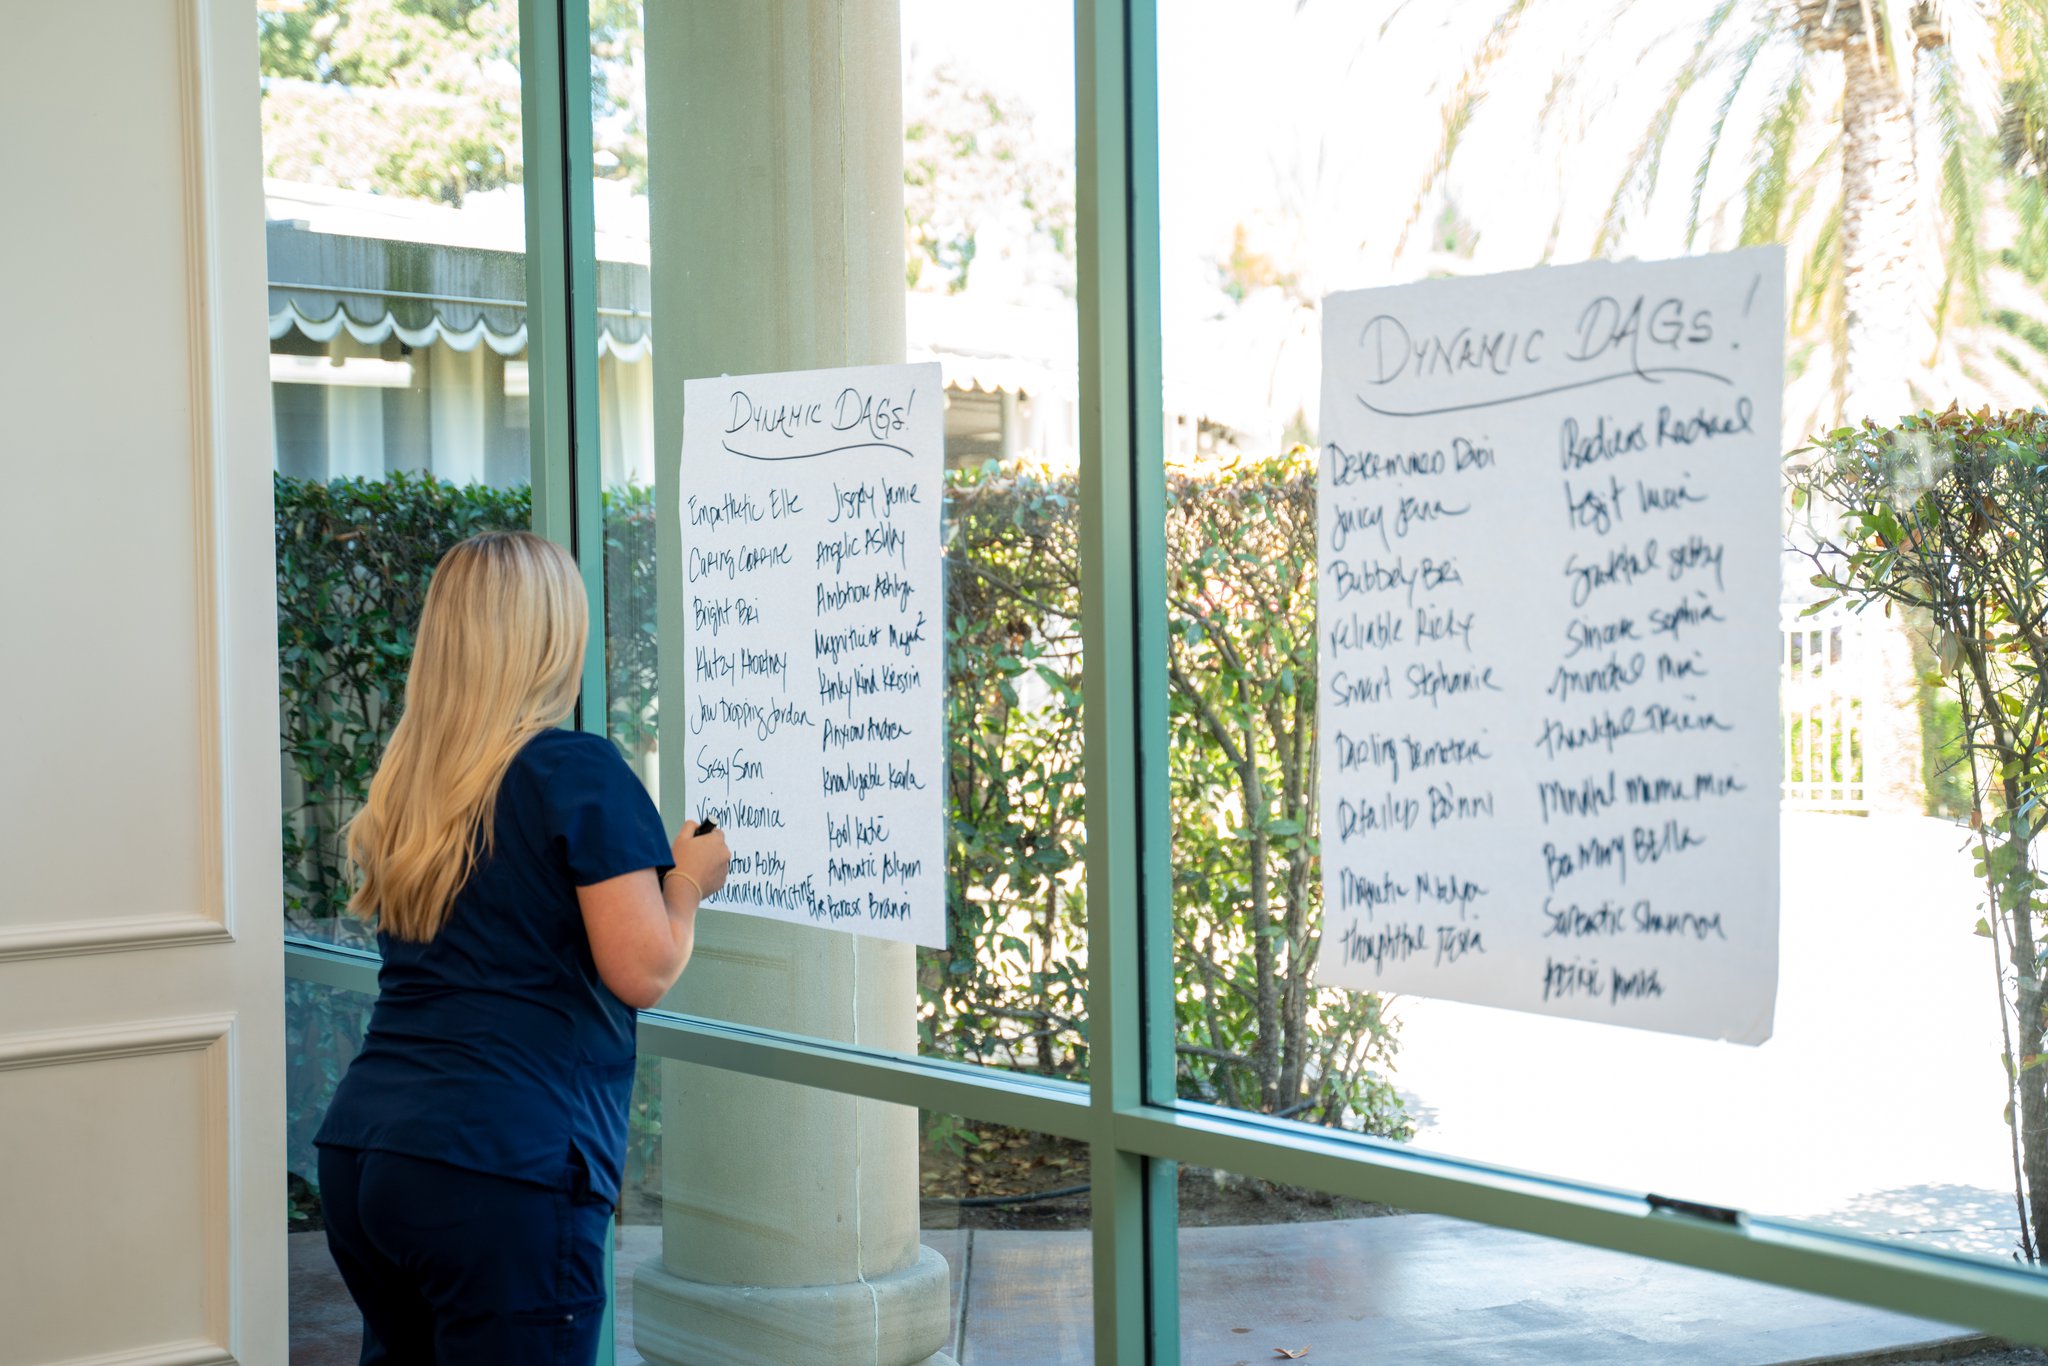 DYNAMIC DAGs!
Empathetic Elle
Caring Corrine
Bright Bri
Klutzy Kortney
Jaw Dropping Jordan
Sassy Sam
Virgin Veronica
Robby
Christine
Jiggly Jamie
Angelic Ashley
Ambitious Ashlyn
Magnificent
Kinky Kind Kristin
Anxious Andrea
Knowlegable Karla
Kool Kate
Authentic Aslynn
Brandi
DYNAMIC DAGs!
Determined Didi
Juicy Jena
Bubbely Bri
Reliable Ricky
Smart Stephanie
Darling
Detailed
Magnetic
Thoughtful
Radians Rachael
Legit Lucia
Grateful Gabby
Sincere Sophia
Mindful Mia
Thankful Tricia
Mindful Mama Mia
Bella
Sarcastic Shannon